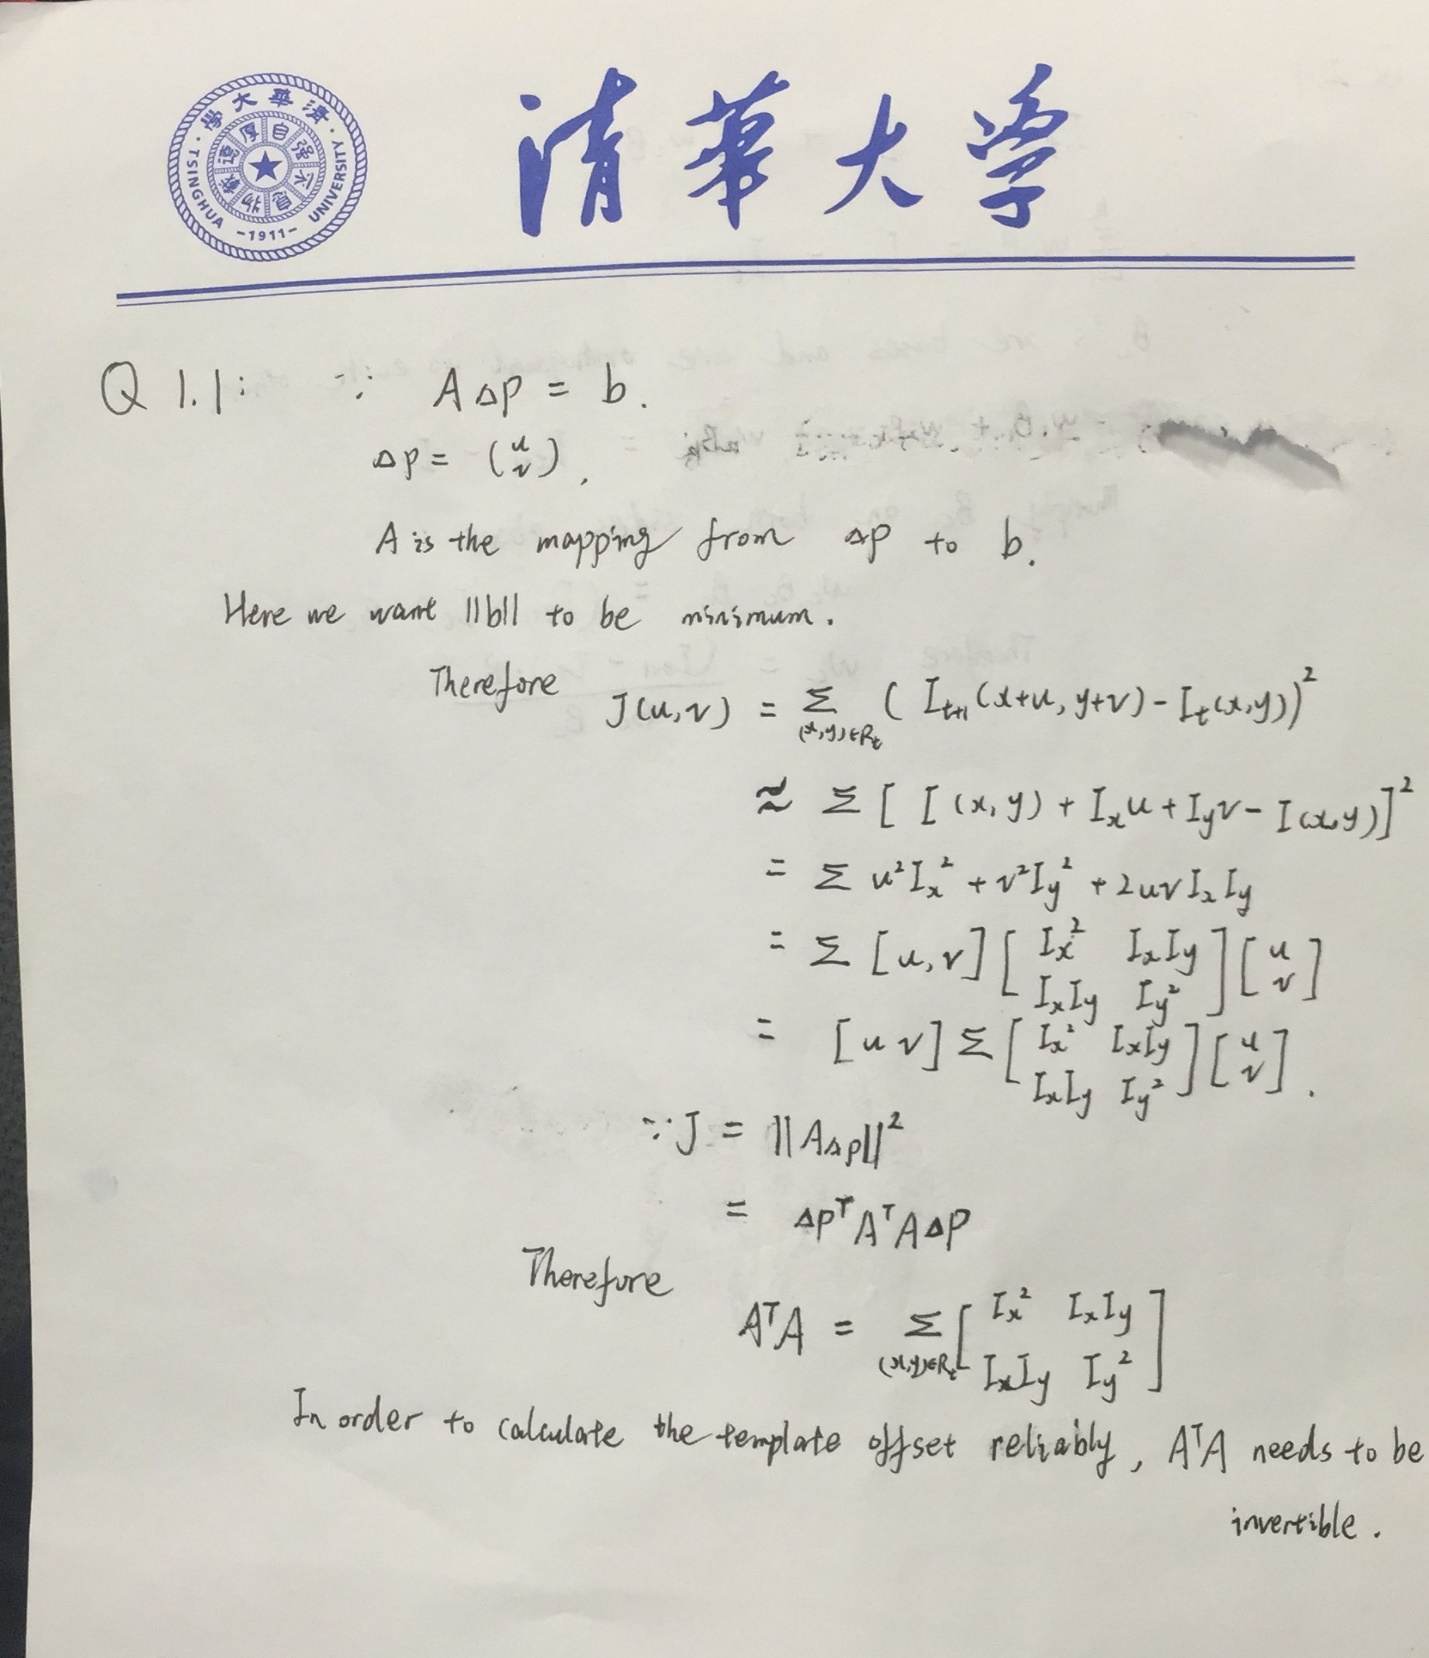 清華大学
清華大學
自强不息 厚德載物
TSINGHUA UNIVERSITY
-1911-
Q 1.1: ∵ A△P = b.
△P = (u v),
A is the mapping from △P to b.
Here we want ||b|| to be minimum.
Therefore J(u,v) = Σ (x,y)∈Rt ( It+1(x+u, y+v) - It(x,y))²
≈ Σ [ I(x,y) + Ixu + Iyv - I(x,y)]²
= Σ u²Ix² + v²Iy² + 2uvIxIy
= Σ [u,v] [Ix² IxIy
IxIy Iy²] [u v]
= [u v] Σ [Ix² IxIy
IxIy Iy²] [u v].
∵ J = ||A△P||²
= △PᵀAᵀA△P
Therefore
AᵀA = Σ (x,y)∈Rt [Ix² IxIy
IxIy Iy²]
In order to calculate the template offset reliably, AᵀA needs to be
invertible.